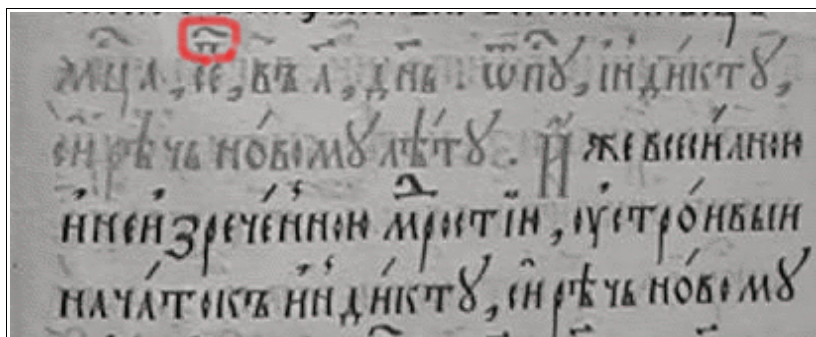 мц҃а, сеⷫ҇, въ а҃, дн҃ь. ѿп҃ꙋ, і҆нди́ктꙋ,
си҆рѣчь но́вомꙋ лѣ́тꙋ. И҆же всеси́лною
и҆неи҆зрече́нною мⷣростїю, ѹстро́ивыи
нача́токъ и҆нди́ктꙋ, си҆рѣчь но́вомꙋ